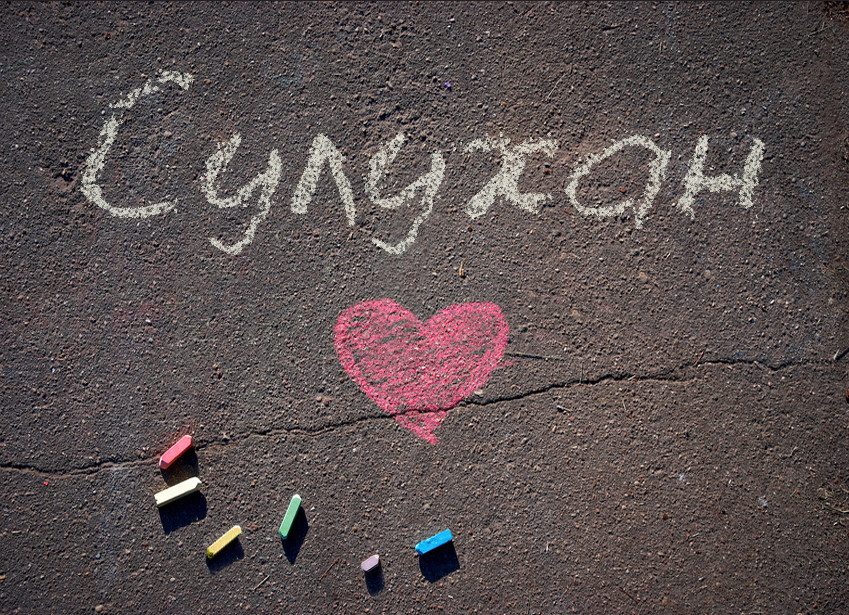 Сулухан